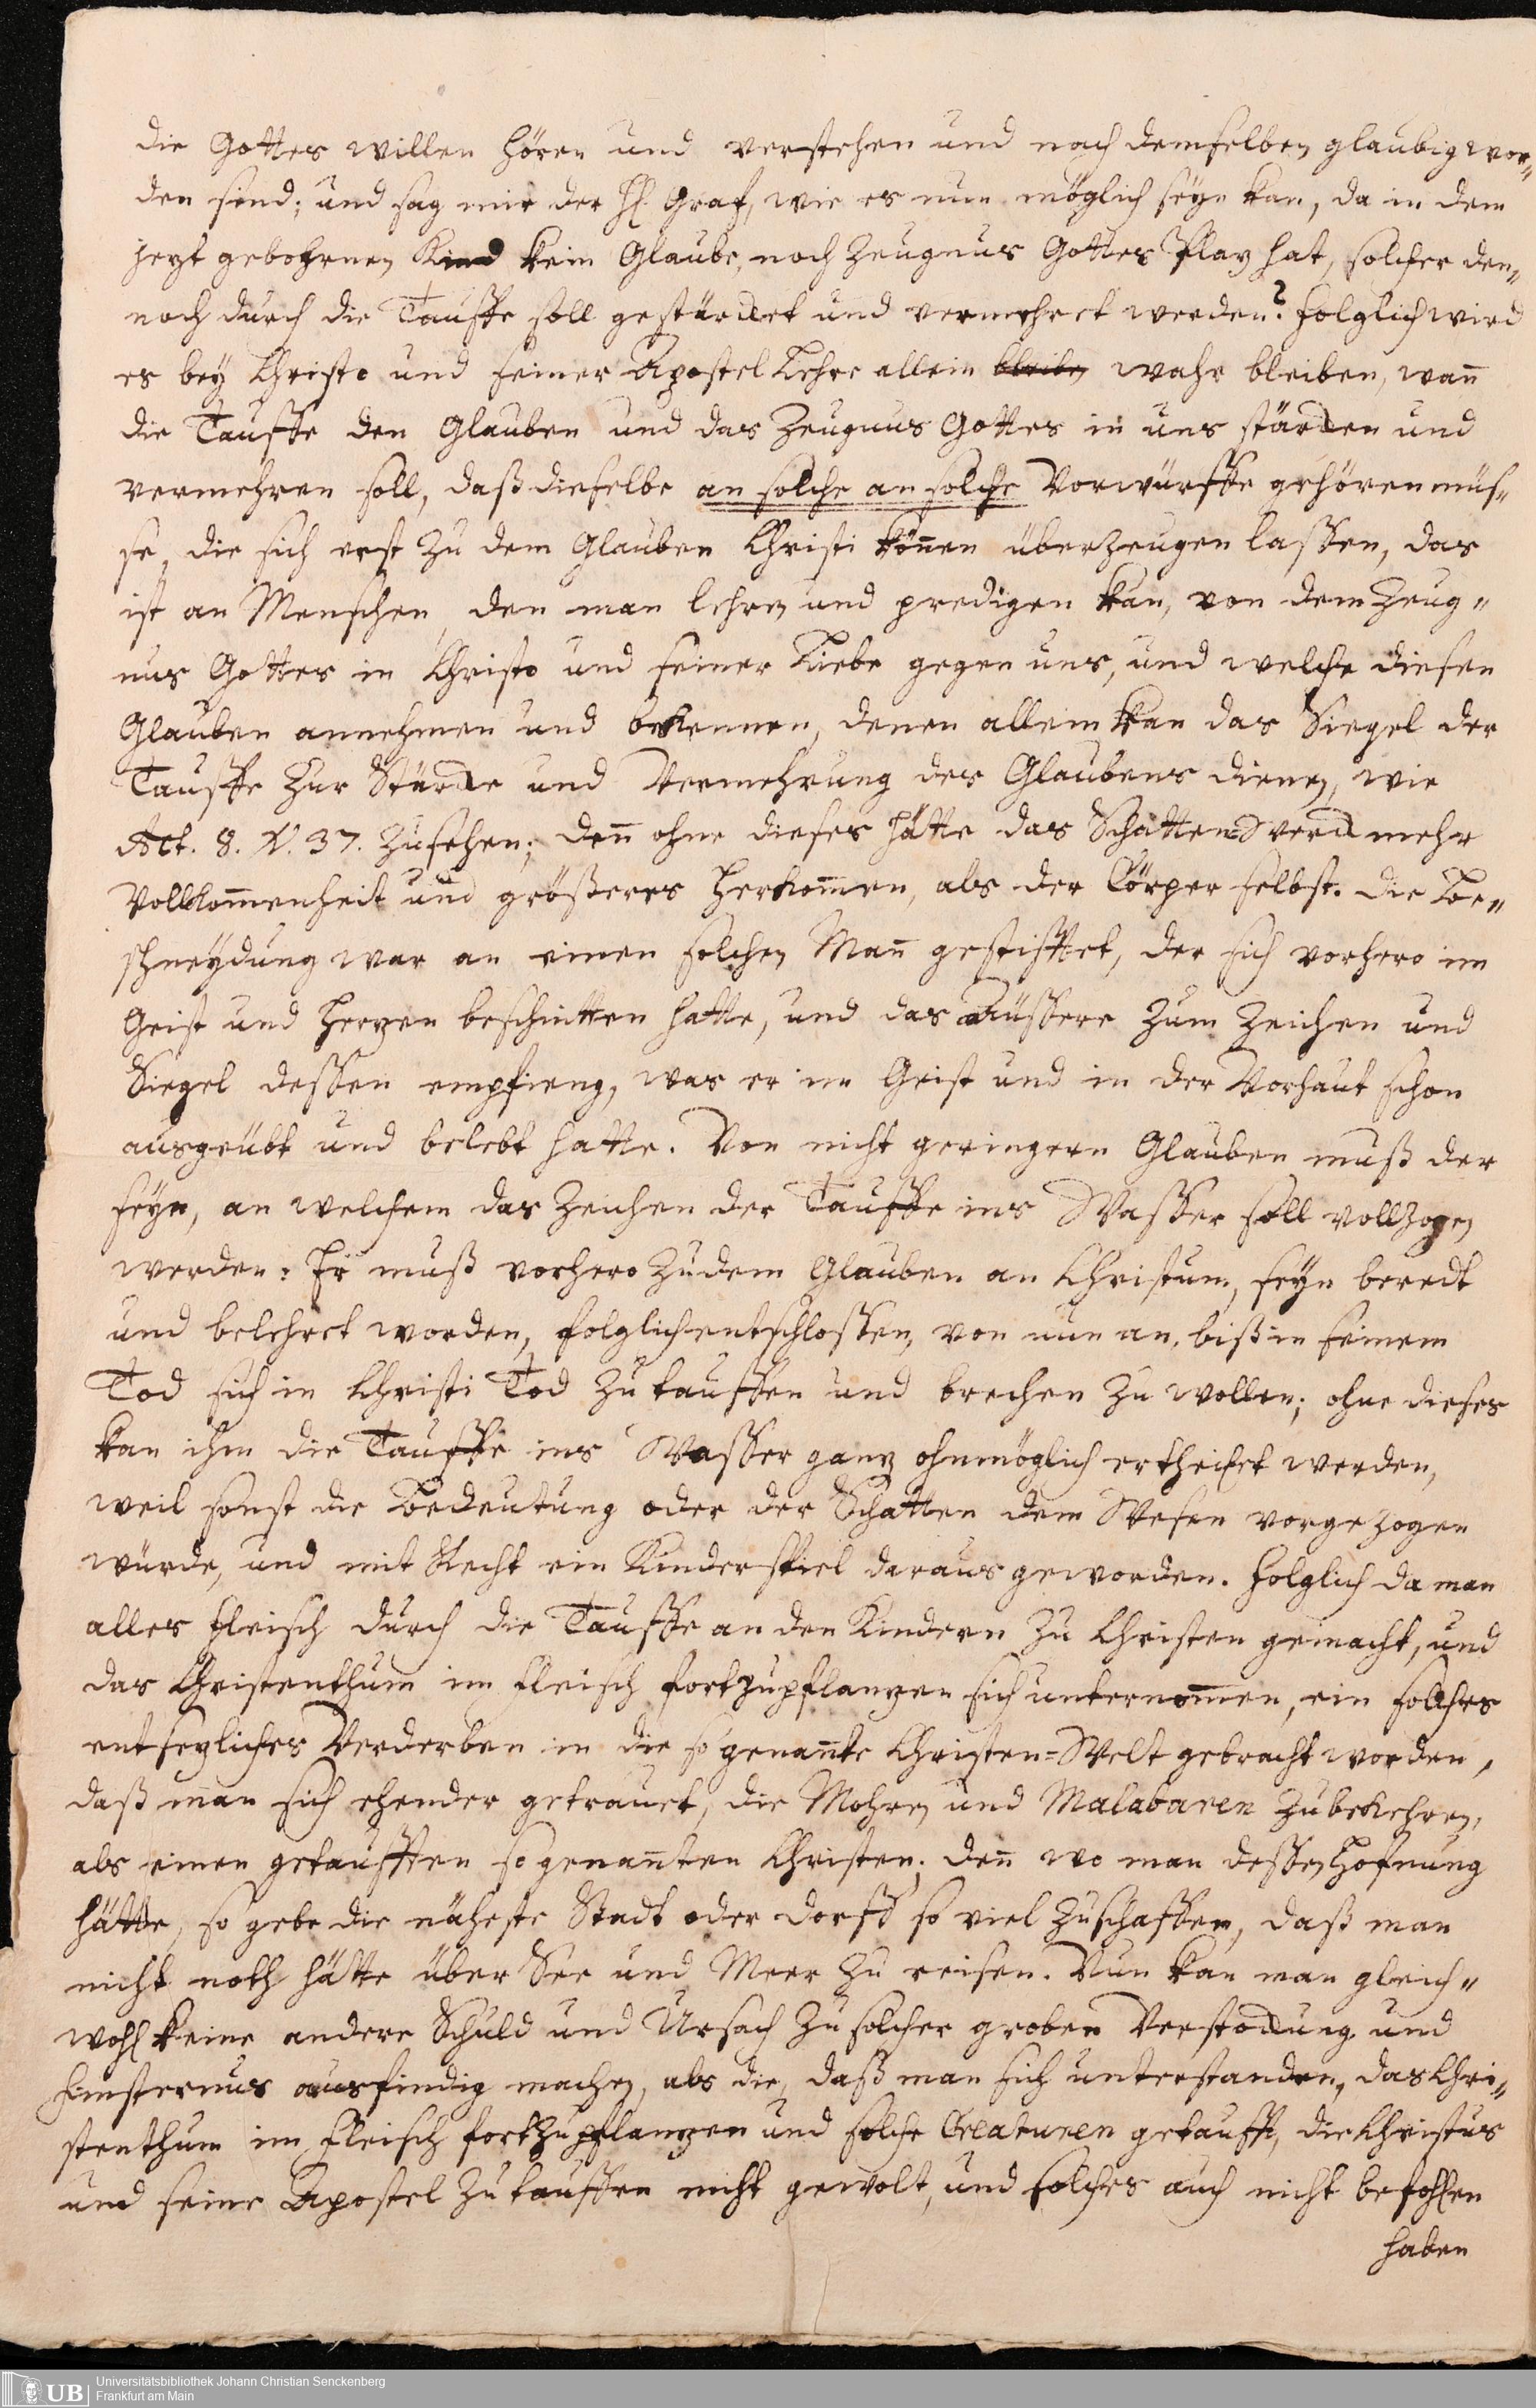 die Gottes willen hören und verstehen und nach demselben glaubig wor-
den sind; und sag mir der H. Graf, wie es nun möglich seyn kan, da in dem
jezt gebohrnen Kind kein Glaube, noch Zeugnus Gottes Plaz hat, solcher den-
noch durch die Tauffe soll gestärcket und vermehret werden? folglich wird
es bey Christo und seiner Apostel Lehre allein bleiben wahr bleiben, wañ
die Tauffe den Glauben und das Zeugnus Gottes in uns stärcken und
vermehren soll, daß dieselbe an solche an solche Vorwürffe gehören müs-
se, die sich erst zu dem Glauben Christi köñen überzeugen lassen, das
ist an Menschen, den man lehren und predigen kan, von dem Zeug-
nus Gottes in Christo und seiner Liebe gegen uns, und welche diesen
Glauben annehmen und bekennen, denen allein kan das Siegel der
Tauffe zur Stärcke und Vermehrung des Glaubens dienen, wie
Act. 8. V. 37. zusehen; deñ ohne dieses hätte das Schatten-Werck mehr
Vollkom̃enheit und größeres Herkom̃en, als der Cörper selbst. Die Be-
schneydung war an einen solchen Mañ gestifftet, der sich vorhero im
Geist und Herzen beschnitten hatte, und das Äussere zum Zeichen und
Siegel dessen empfieng, was er im Geist und in der Vorhaut schon
ausgeübt und belebt hatte. Von nicht geringern Glauben muß der
seyn, an welchem das Zeichen der Tauffe ins Wasser soll vollzogen
werden: Er muß vorhero zu dem Glauben an Christum, seyn beredt
und belehret worden, folglich entschlossen, von nun an, biß in seinem
Tod sich in Christi Tod zu tauffen und brechen zu wollen; ohne dieses
kan ihm die Tauffe ins Wasser ganz ohnmöglich ertheilet werden,
weil sonst die Bedeutung oder der Schatten dem Wesen vorgezogen
würde, und mit Recht ein Kinderspiel daraus geworden. Folglich da man
alles Fleisch durch die Tauffe an den Kindern zu Christen gemacht, und
das Christenthum im Fleisch fortzupflanzen sich unternom̃en, ein solches
entsezliches Verderben in die so genañte Christen-Welt gebracht worden,
daß man sich ehender getrauet, die Mohren und Malabaren zubekehren,
als einen getaufften so genañten Christen; deñ wo man dessen Hofnung
hätte, so gebe die näheste Stadt oder Dorff so viel zuschaffen, daß man
nicht noth hätte über See und Meer zu reisen. Nun kan man gleich-
wohl keine andere Schuld und Ursach zu solcher groben Verstockung und
Finsternus ausfindig machen, als die, daß man sich unterstanden, das Chri-
stenthum im Fleisch fortzupflanzen und solche Creaturen getaufft, die Christus
und seine Apostel zu tauffen nicht gewolt, und solches auch nicht befohlen
haben
UB
Universitätsbibliothek Johann Christian Senckenberg
Frankfurt am Main